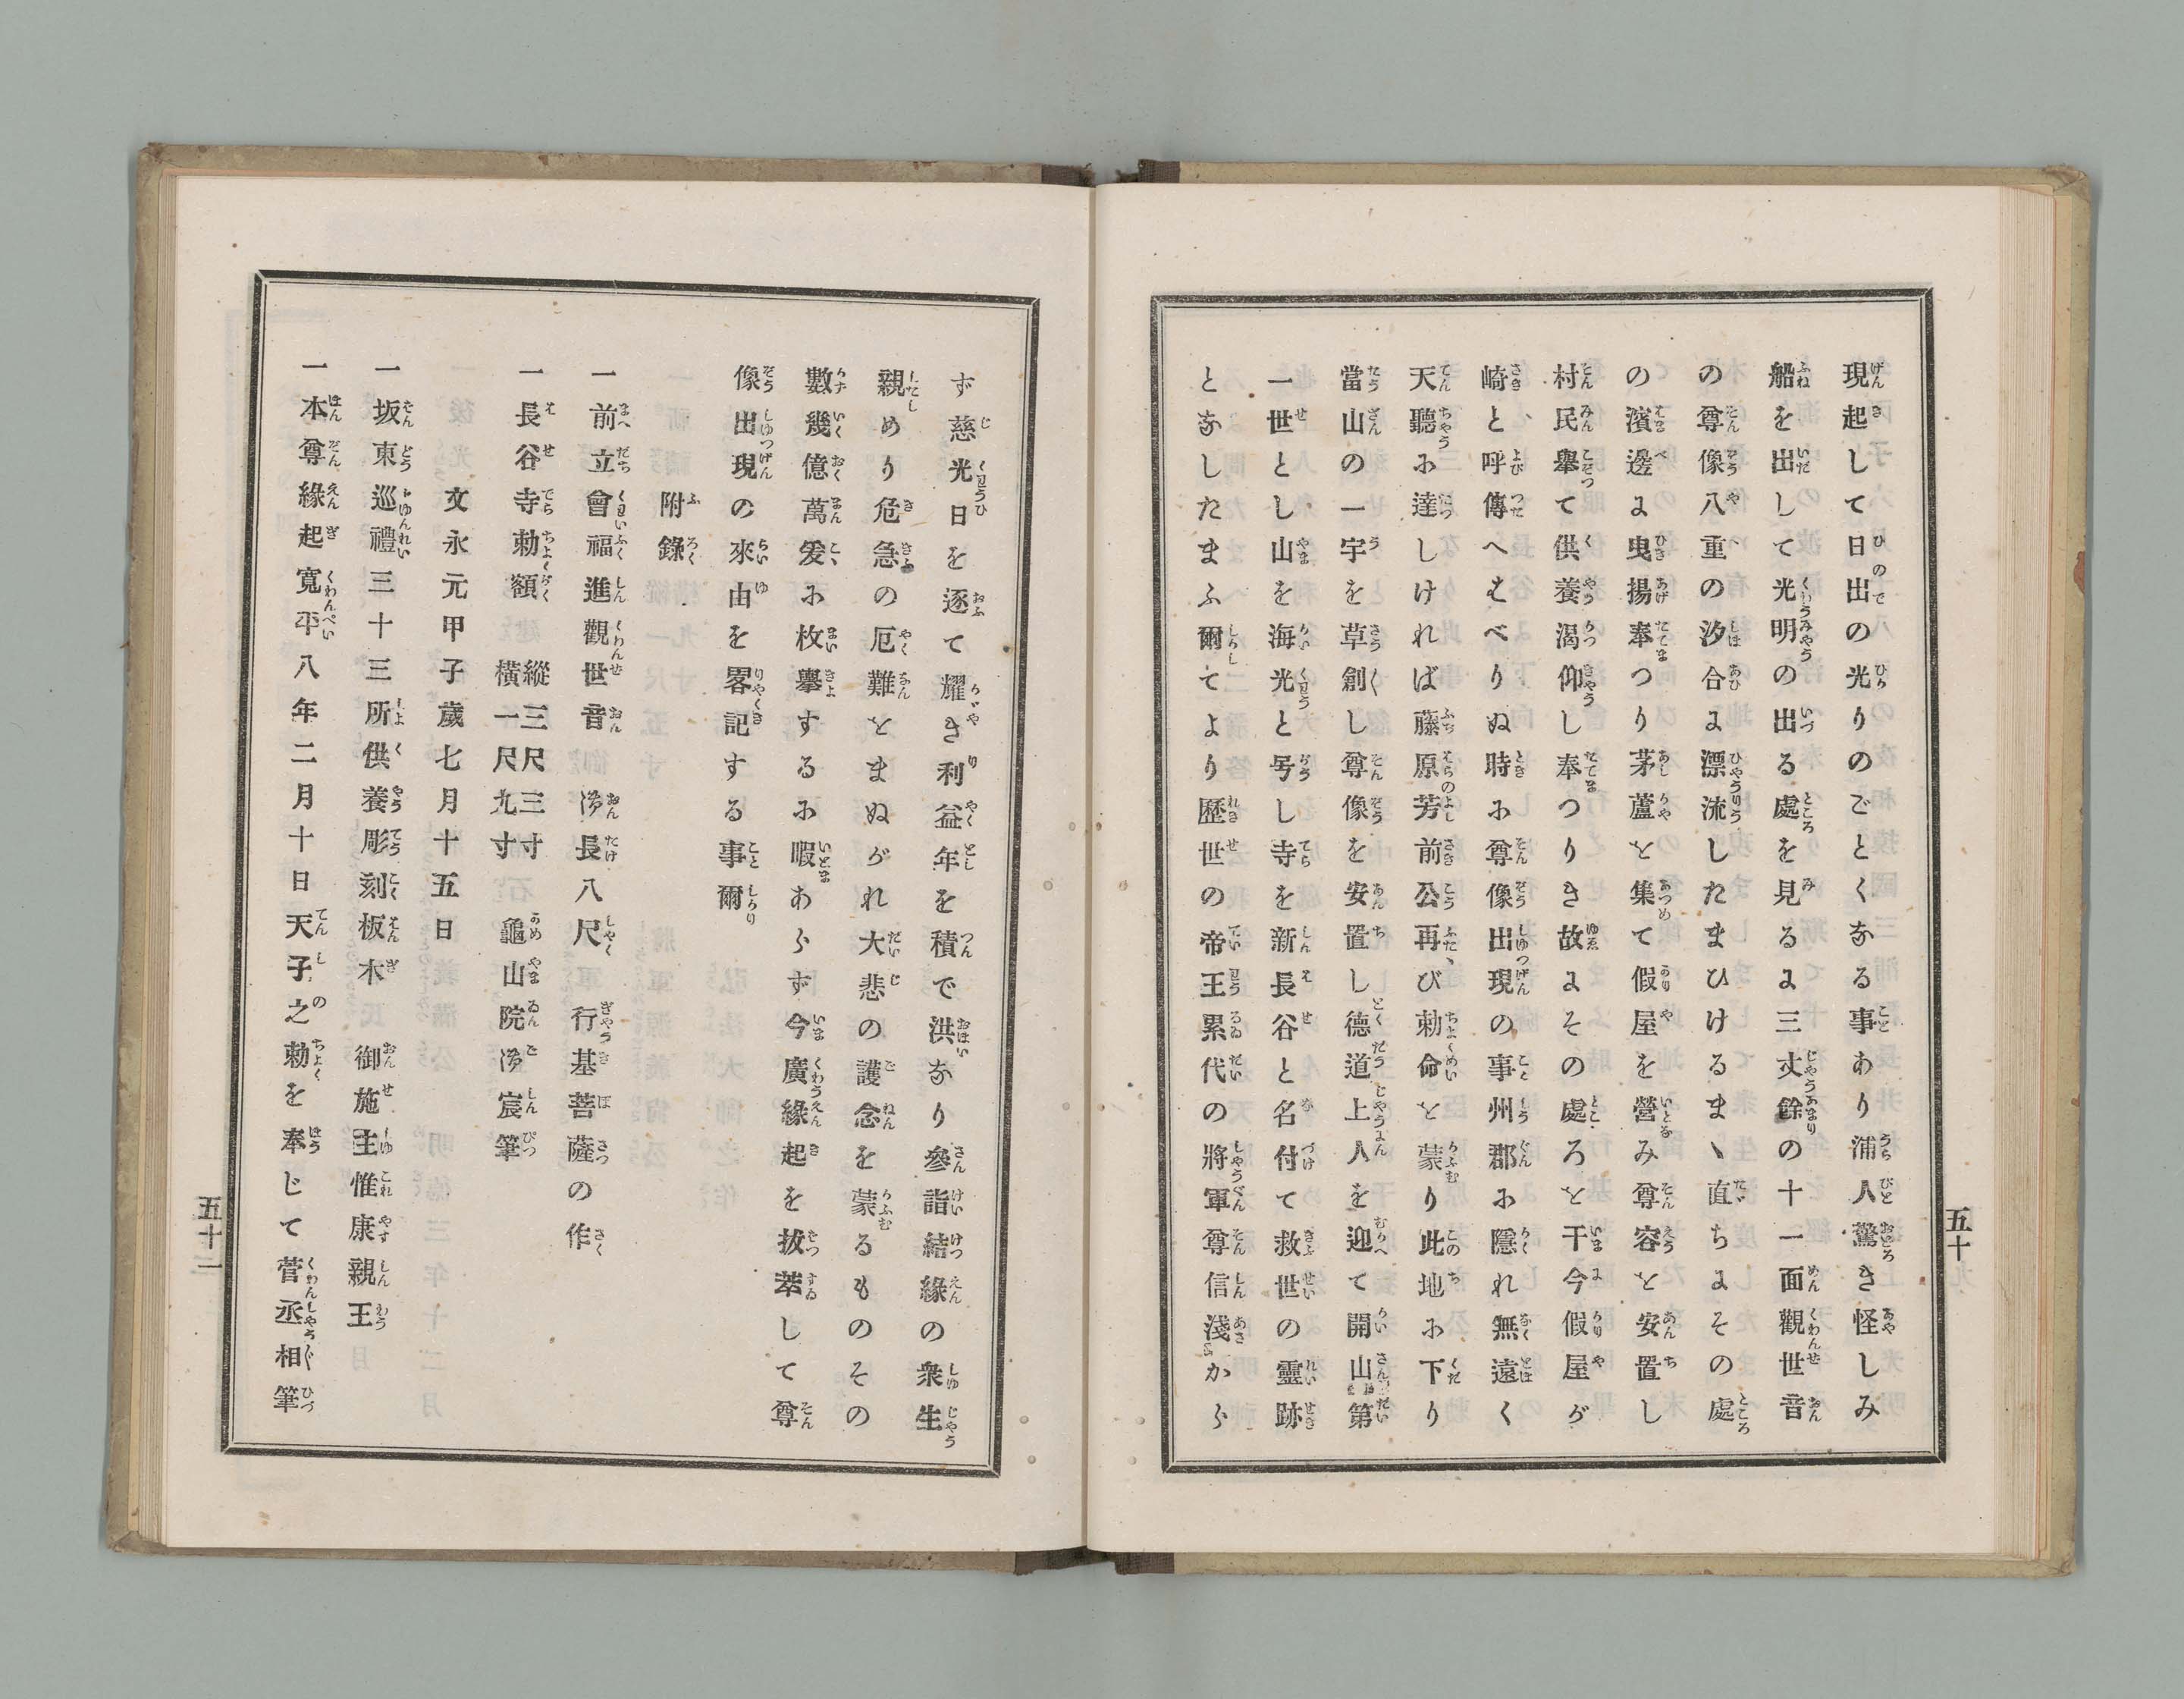 現起して日出の光りのごとくなる事あり浦人驚き怪しみ
船を出して光明の出る處を見るに三丈餘の十一面觀世音
の尊像八重の汐合に漂流したまひけるまゝ直ちにその處
の濱邊に曳揚奉つり茅蘆を集めて假屋を營み尊容を安置し
村民舉て供養渇仰し奉つりき故にその處ろを干今假屋が
崎と呼傳へはべりぬ時に尊像出現の事州郡に隱れ無遠く
天聽に達しければ藤原芳前公再び勅命を蒙り此地に下り
當山の一宇を草創し尊像を安置し德道上人を迎て開山第
一世とし山を海光と号し寺を新長谷と名付て救世の靈跡
となしたまふ爾てより歷世の帝王累代の將軍尊信淺から
五十
ず慈光日を逐て耀き利益年を積で洪なり參詣結緣の衆生
親めり危急の厄難をまぬがれ大悲の護念を蒙るものその
數幾億萬爰に枚擧するに暇あらず今廣緣起を拔萃して尊
像出現の來由を畧記する事爾
附錄
一前立會福進觀世音 御長八尺 行基菩薩の作
一長谷寺勅額 縱三尺三寸 橫一尺九寸 龜山院御宸筆
文永元甲子歲七月十五日
一坂東巡禮三十三所供養彫刻板木 御施主惟康親王
一本尊緣起 寬平八年二月十日天子之勅を奉じて菅丞相筆
五十一